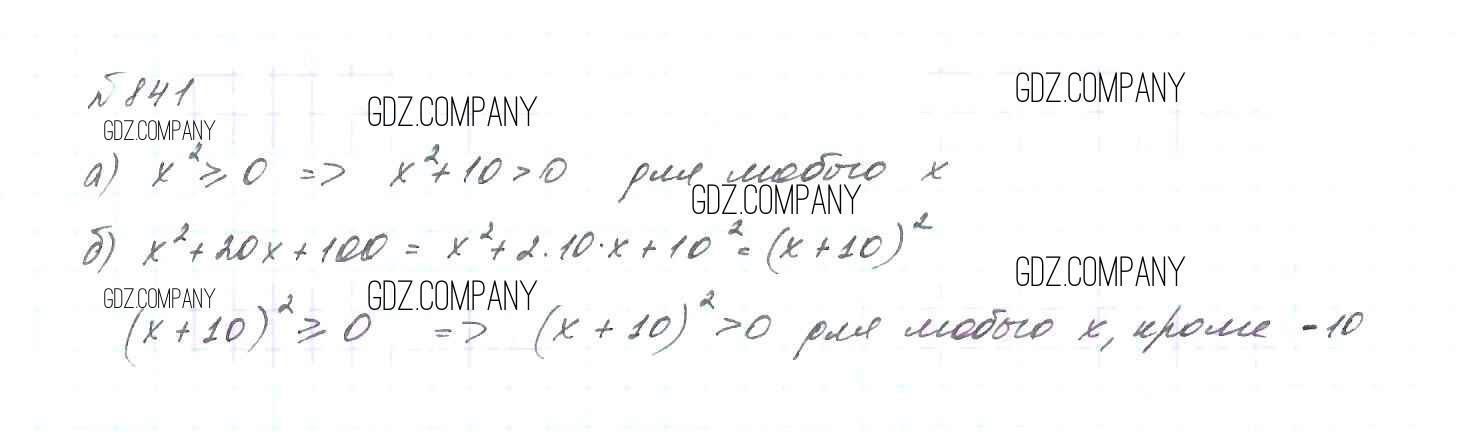 № 841
GDZ.COMPANY GDZ.COMPANY GDZ.COMPANY
а) x² ≥ 0 => x² + 10 > 0 для любого x
GDZ.COMPANY
б) x² + 20x + 100 = x² + 2·10·x + 10² = (x + 10)²
GDZ.COMPANY GDZ.COMPANY GDZ.COMPANY
(x + 10)² ≥ 0 => (x + 10)² > 0 для любого x, кроме -10